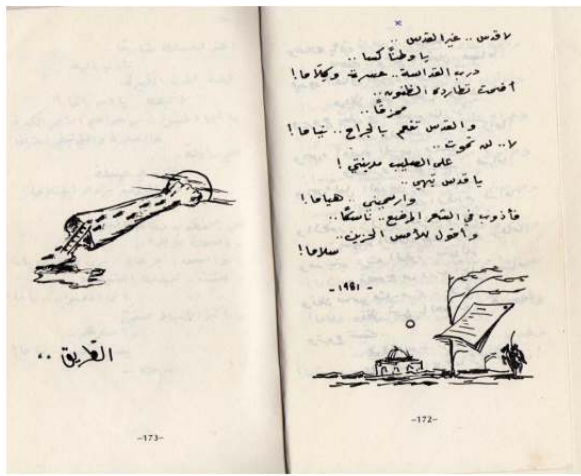 لا قدس .. غير القدس ..
يا وطناً كسا ..
درب القداسة .. حسرة وكلاما !
أضحت تطارده الظنون ..
ممزقاً ..
والقدس تفعم بالجراح ..
لا .. لن تموت ..
على الصليب مدينتي !
يا قدس تيهي ..
وارسميني .. هياما !
فأذوب في الشعر المرصع .. ناسكا ..
وأقول للأمس الحزين ..
سلاما !
- 1981 -
-172-
الطريق ..
-173-